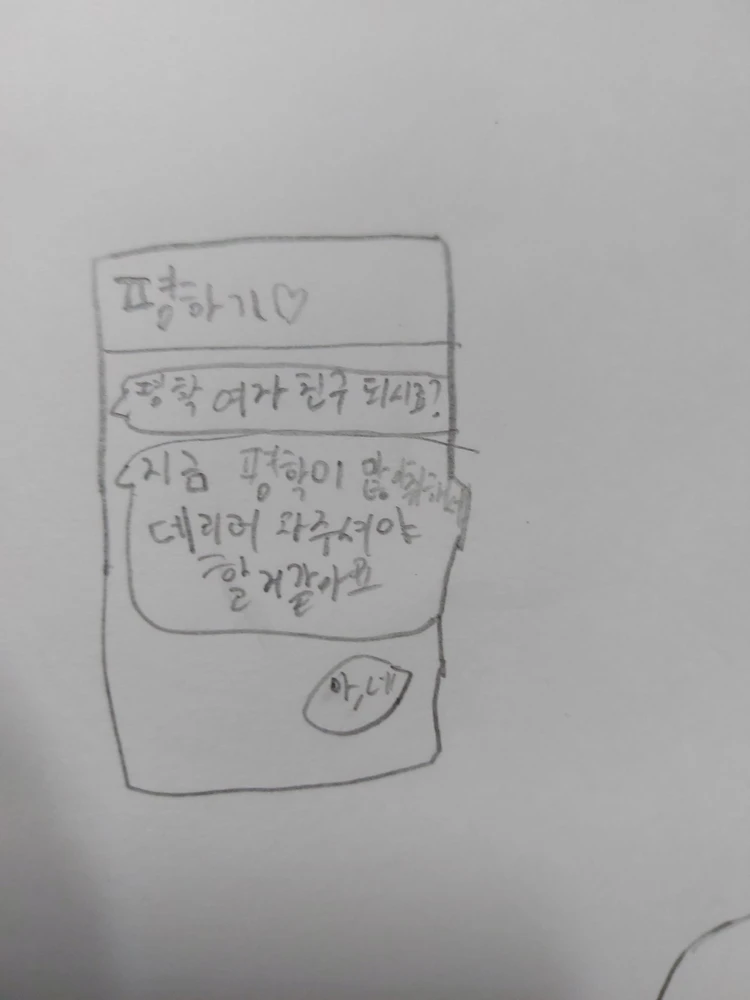 평하기♡
평학 여자친구 되시죠?
지금 평학이 많이취해서
데리러 와주셔야
할거같아요
아,네